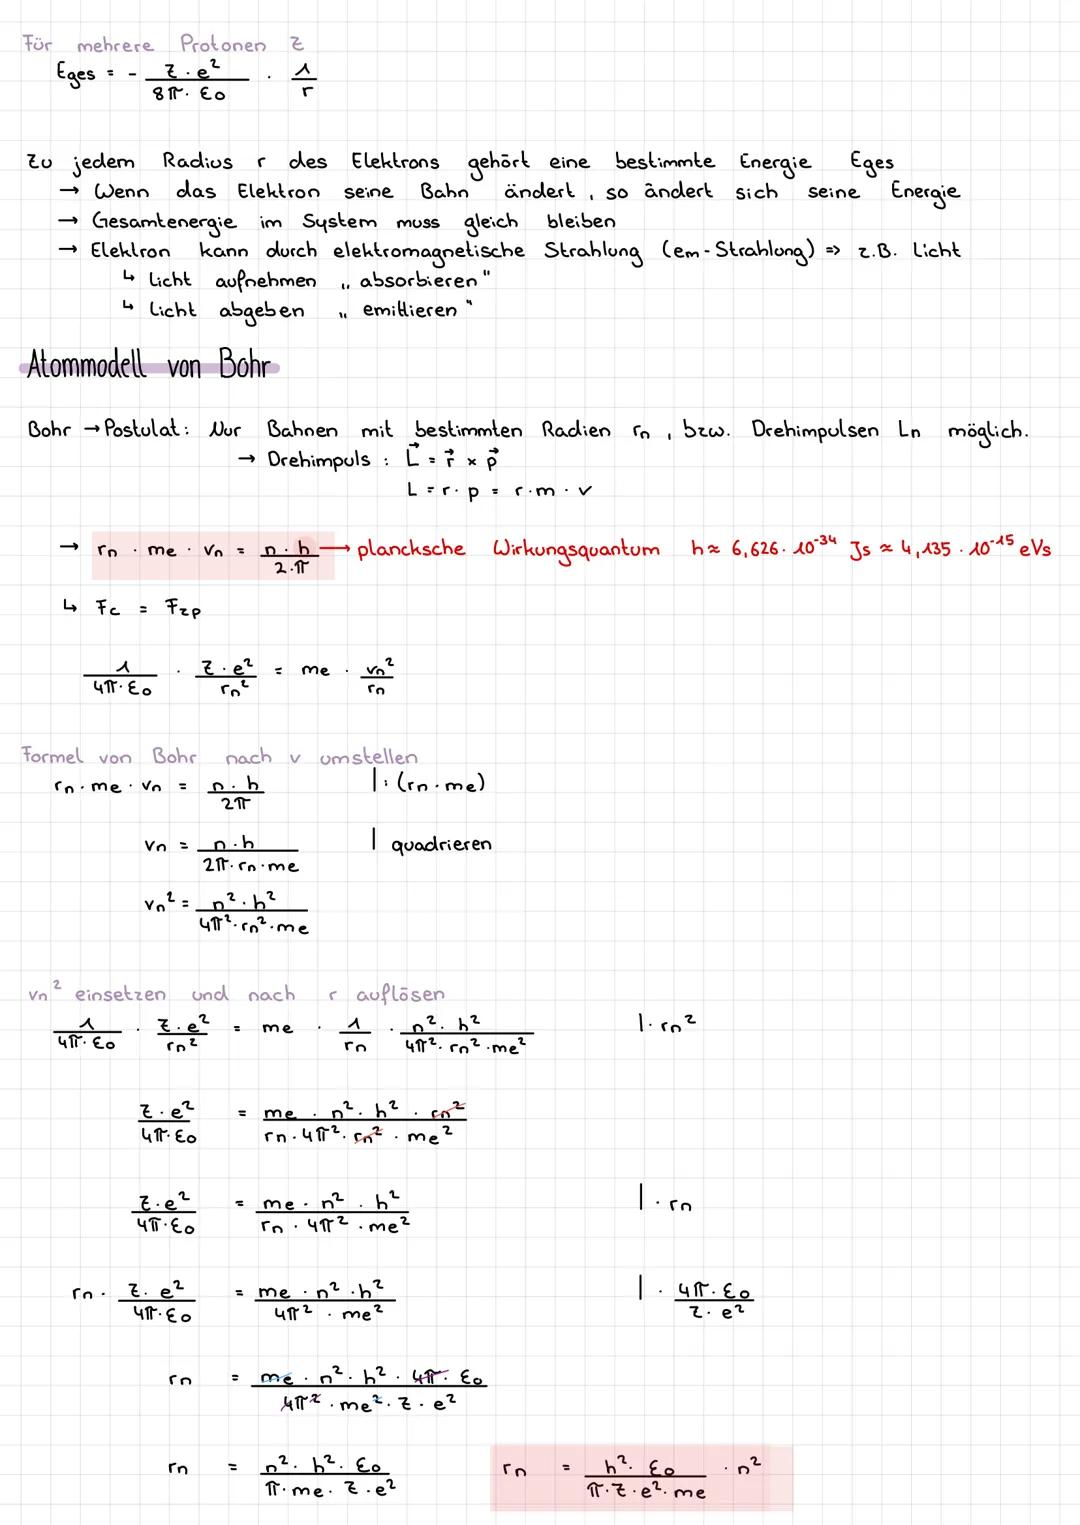 Für mehrere Protonen Z
Eges = - Z · e² / 8π · ε₀ · 1 / r
Zu jedem Radius r des Elektrons gehört eine bestimmte Energie Eges
→ Wenn das Elektron seine Bahn ändert, so ändert sich seine Energie
→ Gesamtenergie im System muss gleich bleiben
→ Elektron kann durch elektromagnetische Strahlung (em-Strahlung) => z.B. Licht
↳ Licht aufnehmen „absorbieren"
↳ Licht abgeben „emittieren"
Atommodell von Bohr
Bohr → Postulat: Nur Bahnen mit bestimmten Radien rn, bzw. Drehimpulsen Ln möglich.
→ Drehimpuls: L⃗ = r⃗ × p⃗
L = r · p = r · m · v
→ rn · me · vn = n · h / 2 · π → plancksche Wirkungsquantum h ≈ 6,626 · 10⁻³⁴ Js ≈ 4,135 · 10⁻¹⁵ eVs
↳ Fc = Fzp
1 / 4π · ε₀ · Z · e² / rn² = me · vn² / rn
Formel von Bohr nach v umstellen
rn · me · vn = n · h / 2π |: (rn · me)
vn = n · h / 2π · rn · me | quadrieren
vn² = n² · h² / 4π² · rn² · me
vn² einsetzen und nach r auflösen
1 / 4π · ε₀ · Z · e² / rn² = me · 1 / rn · n² · h² / 4π² · rn² · me² | · rn²
Z · e² / 4π · ε₀ = me · n² · h² · rn² / rn · 4π² · rn² · me²
Z · e² / 4π · ε₀ = me · n² · h² / rn · 4π² · me² | · rn
rn · Z · e² / 4π · ε₀ = me · n² · h² / 4π² · me² | · 4π · ε₀ / Z · e²
rn = me · n² · h² · 4π · ε₀ / 4π² · me² · Z · e²
rn = n² · h² · ε₀ / π · me · Z · e² rn = h² · ε₀ / π · Z · e² · me · n²